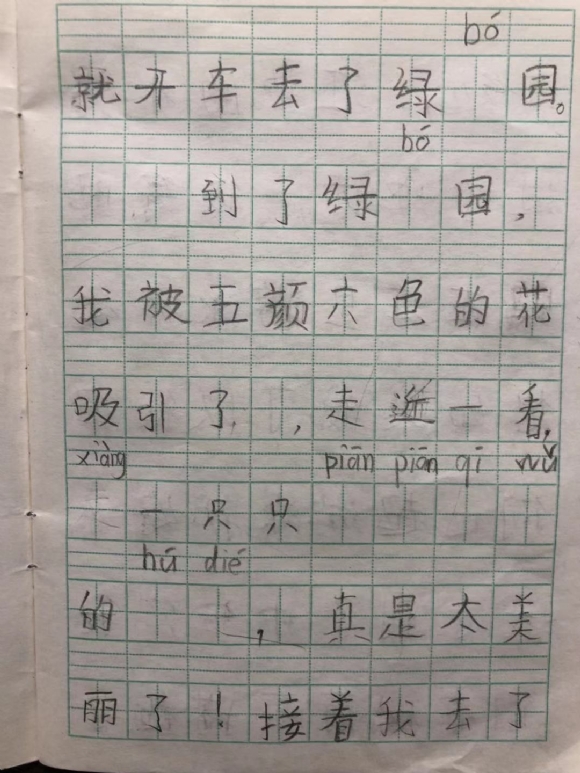 bó
就开车去了绿 园。
bó
到了绿 园，
我被五颜六色的花
吸引了，走 一看，
xiàng piān piān qi wǔ
一只只
hú dié
的 ，真是太美
丽了！接着我去了